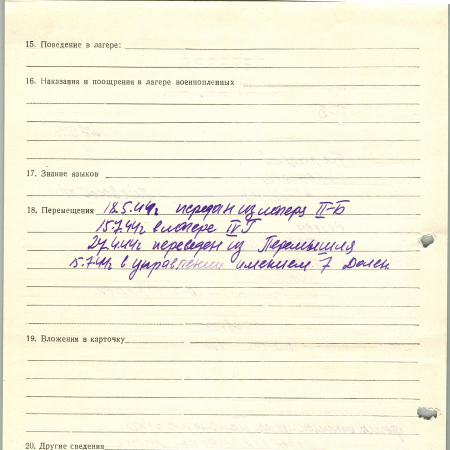 15. Поведение в лагере:
16. Наказания и поощрения в лагере военнопленных
17. Знание языков
18. Перемещения 18.5.44г передан из лагеря II-Б
15.7.44г в лагере IV Г
27.4.44г переведен из Перемышля
15.7.44г в управлении имением 7 Дален
19. Вложения в карточку
20. Другие сведения